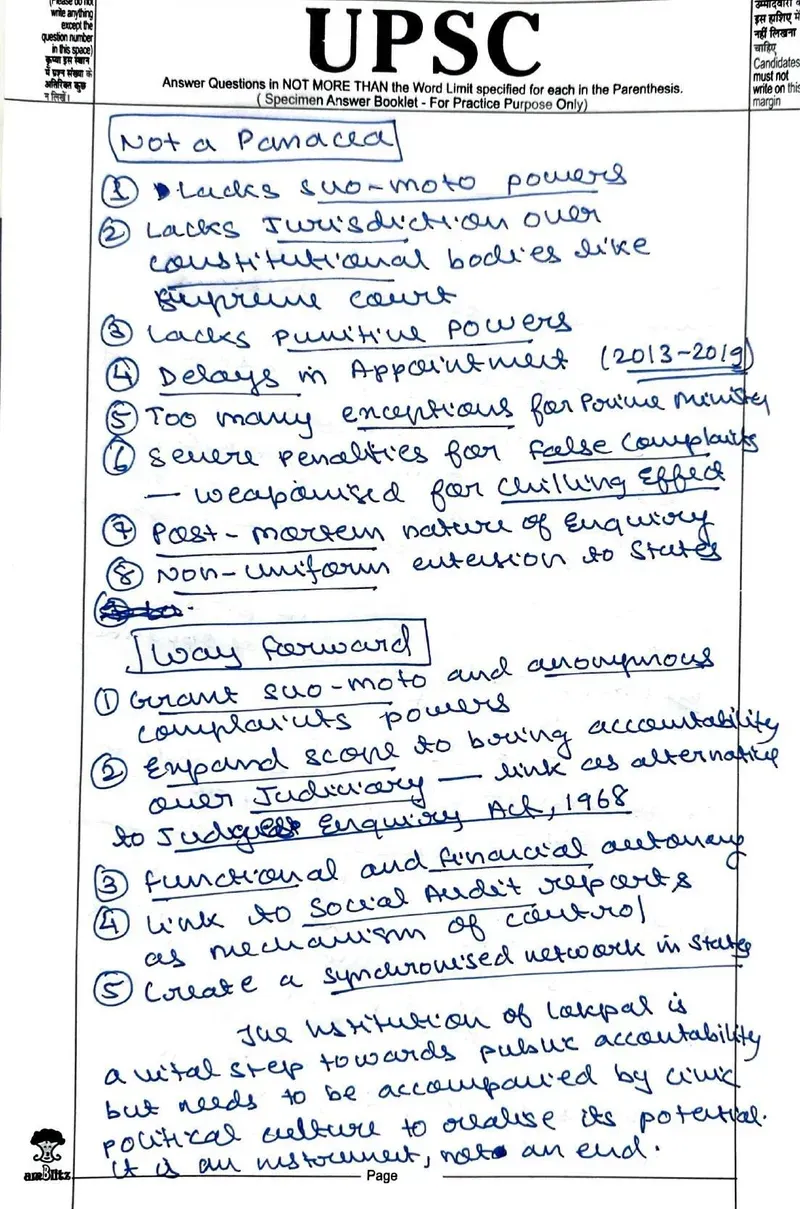 (Please do not
write anything
except the
question number
in this space)
कृपया इस स्थान
में प्रश्न संख्या के
अतिरिक्त कुछ
न लिखें।
UPSC
Answer Questions in NOT MORE THAN the Word Limit specified for each in the Parenthesis.
( Specimen Answer Booklet - For Practice Purpose Only)
उम्मीदवारों को
इस हाशिए में
नहीं लिखना
चाहिए
Candidates
must not
write on this
margin
Not a Panacea
① Lacks suo-moto powers
② Lacks Jurisdiction over
constitutional bodies like
Supreme court
③ Lacks punitive powers
④ Delays in Appointment (2013-2019)
⑤ Too many exceptions for Prime Minister
⑥ Severe penalties for false complaints
— weaponised for chilling Effect
⑦ Post-mortem nature of Enquiry
⑧ Non-uniform extension to States
Way forward
① Grant suo-moto and anonymous
complaints powers
② Expand scope to bring accountability
over Judiciary — link as alternative
to Judges Enquiry Act, 1968
③ functional and financial autonomy
④ link to Social Audit reports
as mechanism of control
⑤ Create a synchronised network in States
The Institution of Lokpal is
a vital step towards public accountability
but needs to be accompanied by civic
political culture to realise its potential.
It is an instrument, not an end.
amBlitz
Page